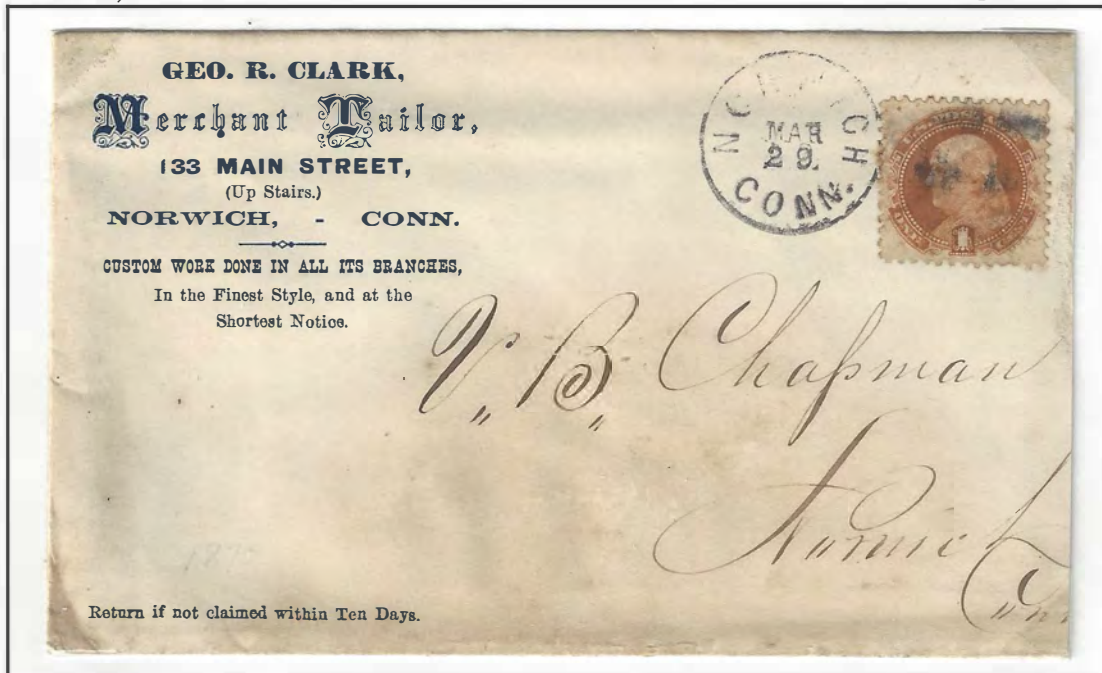 GEO. R. CLARK,
Merchant Tailor,
133 MAIN STREET,
(Up Stairs.)
NORWICH, - CONN.
CUSTOM WORK DONE IN ALL ITS BRANCHES,
In the Finest Style, and at the
Shortest Notice.
NORWICH
MAR
29.
CONN.
ONE
1
V. B. Chapman
Norwich
Conn
Return if not claimed within Ten Days.